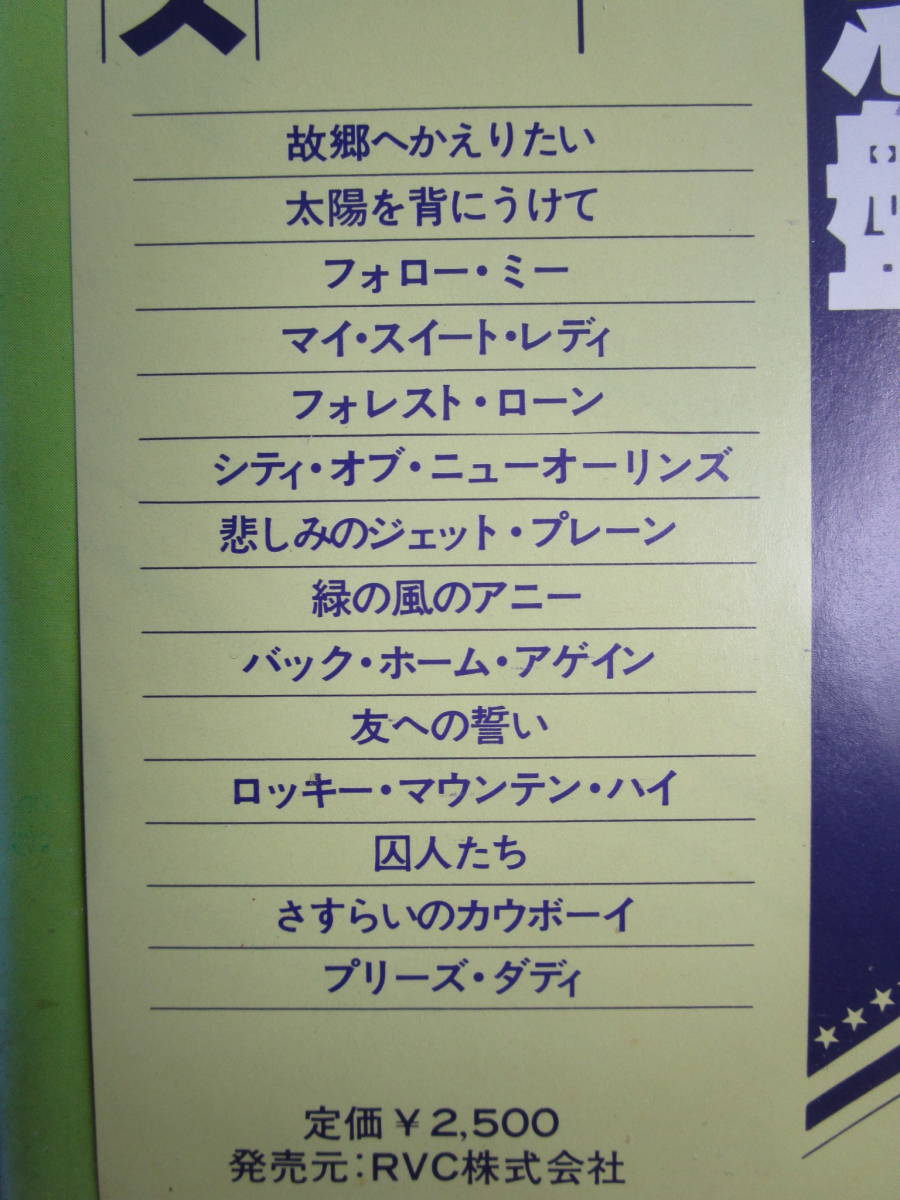 ス
故郷へかえりたい
太陽を背にうけて
フォロー・ミー
マイ・スイート・レディ
フォレスト・ローン
シティ・オブ・ニューオーリンズ
悲しみのジェット・プレーン
緑の風のアニー
バック・ホーム・アゲイン
友への誓い
ロッキー・マウンテン・ハイ
囚人たち
さすらいのカウボーイ
プリーズ・ダディ
定価￥2,500
発売元:RVC株式会社